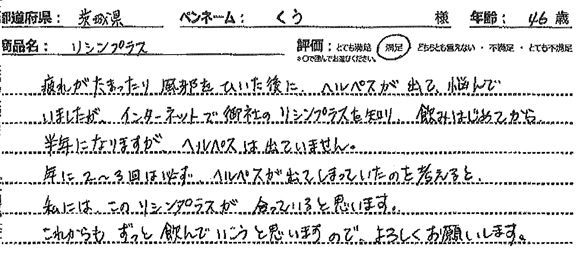 都道府県： 茨城県 ペンネーム： くう 様 年齢： 46 歳
商品名： リシンプラス 評価：とても満足 ・ 満足 ・ どちらとも言えない ・ 不満足 ・ とても不満足
※○で囲んでお選びください。
疲れがたまったり 風邪をひいた後に、ヘルペスが出て、悩んで
いましたが、インターネットで御社のリシンプラスを知り、飲みはじめてから、
半年になりますが、ヘルペスは出ていません。
年に2〜3回は必ず、ヘルペスが出てしまっていたのを考えると、
私には、このリシンプラスが 合っていると思います。
これからも ずっと 飲んでいこうと思いますので、よろしくお願いします。